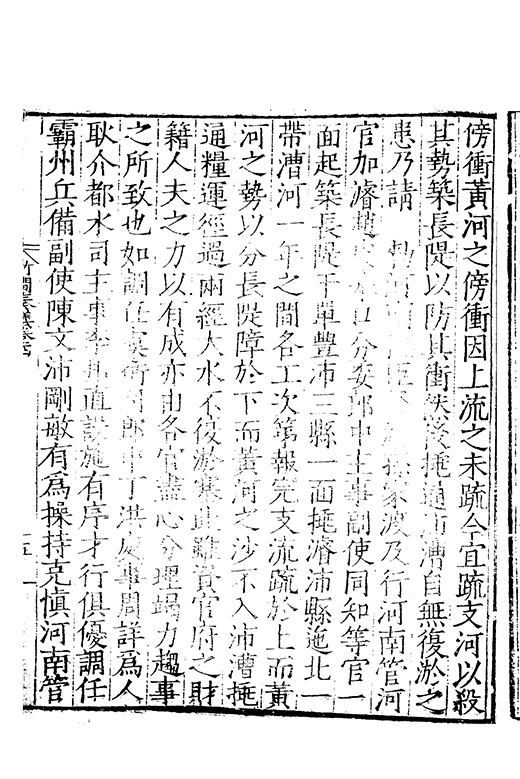 傍衝黃河之傍衝因上流之未疏今宜疏支河以殺
其勢築長隄以防其衝然後挑通沛漕自無復淤之
患乃請 孫家渡及行河南管河
官加濬趙 分委郎中主事副使同知等官一
面起築長隄于單豐沛三縣一面挑濬沛縣迤北一
帶漕河一年之間各工次第報完支流疏於上而黃
河之勢以分長隄障於下而黃河之沙不入沛漕挑
通糧運徑過兩經大水不復淤塞此雖資官府之財
籍人夫之力以有成亦由各官盡心分理竭力趨事
之所致也如調任虞衡司郎中丁洪處事周詳爲人
耿介都水司主事李 直設施有序才行俱優調任
霸州兵備副使陳文沛剛敏有爲操持克慎河南管